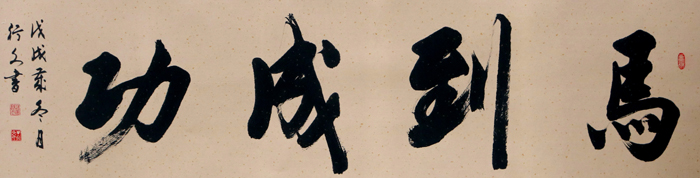 馬到成功
戊戌歲冬月
行之書